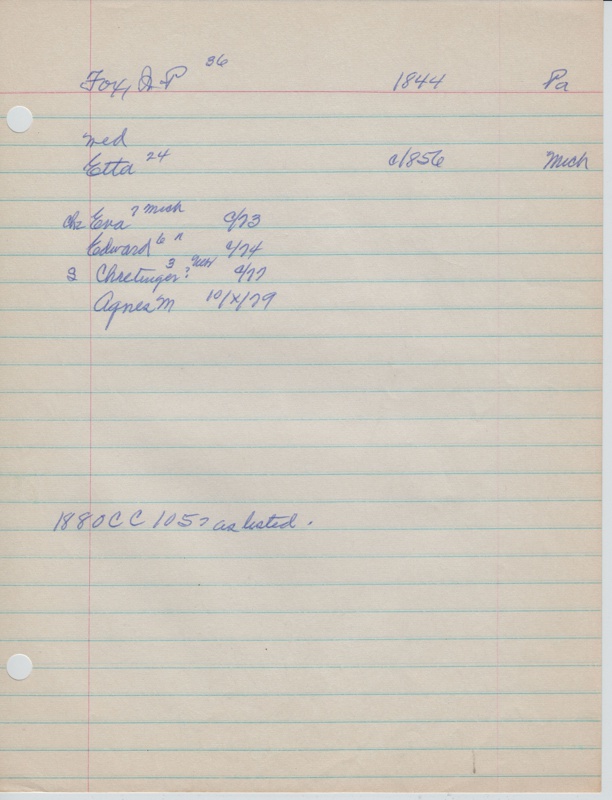 Fox, J. P 36 1844 Pa
med
Etta 24 c/1856 Mich
chz Eva 7 Mich c/73
Edward 6 " c/74
2 Chretinger? 3 c/77
Agnes M 10/x/79
1880 CC 105 as listed.